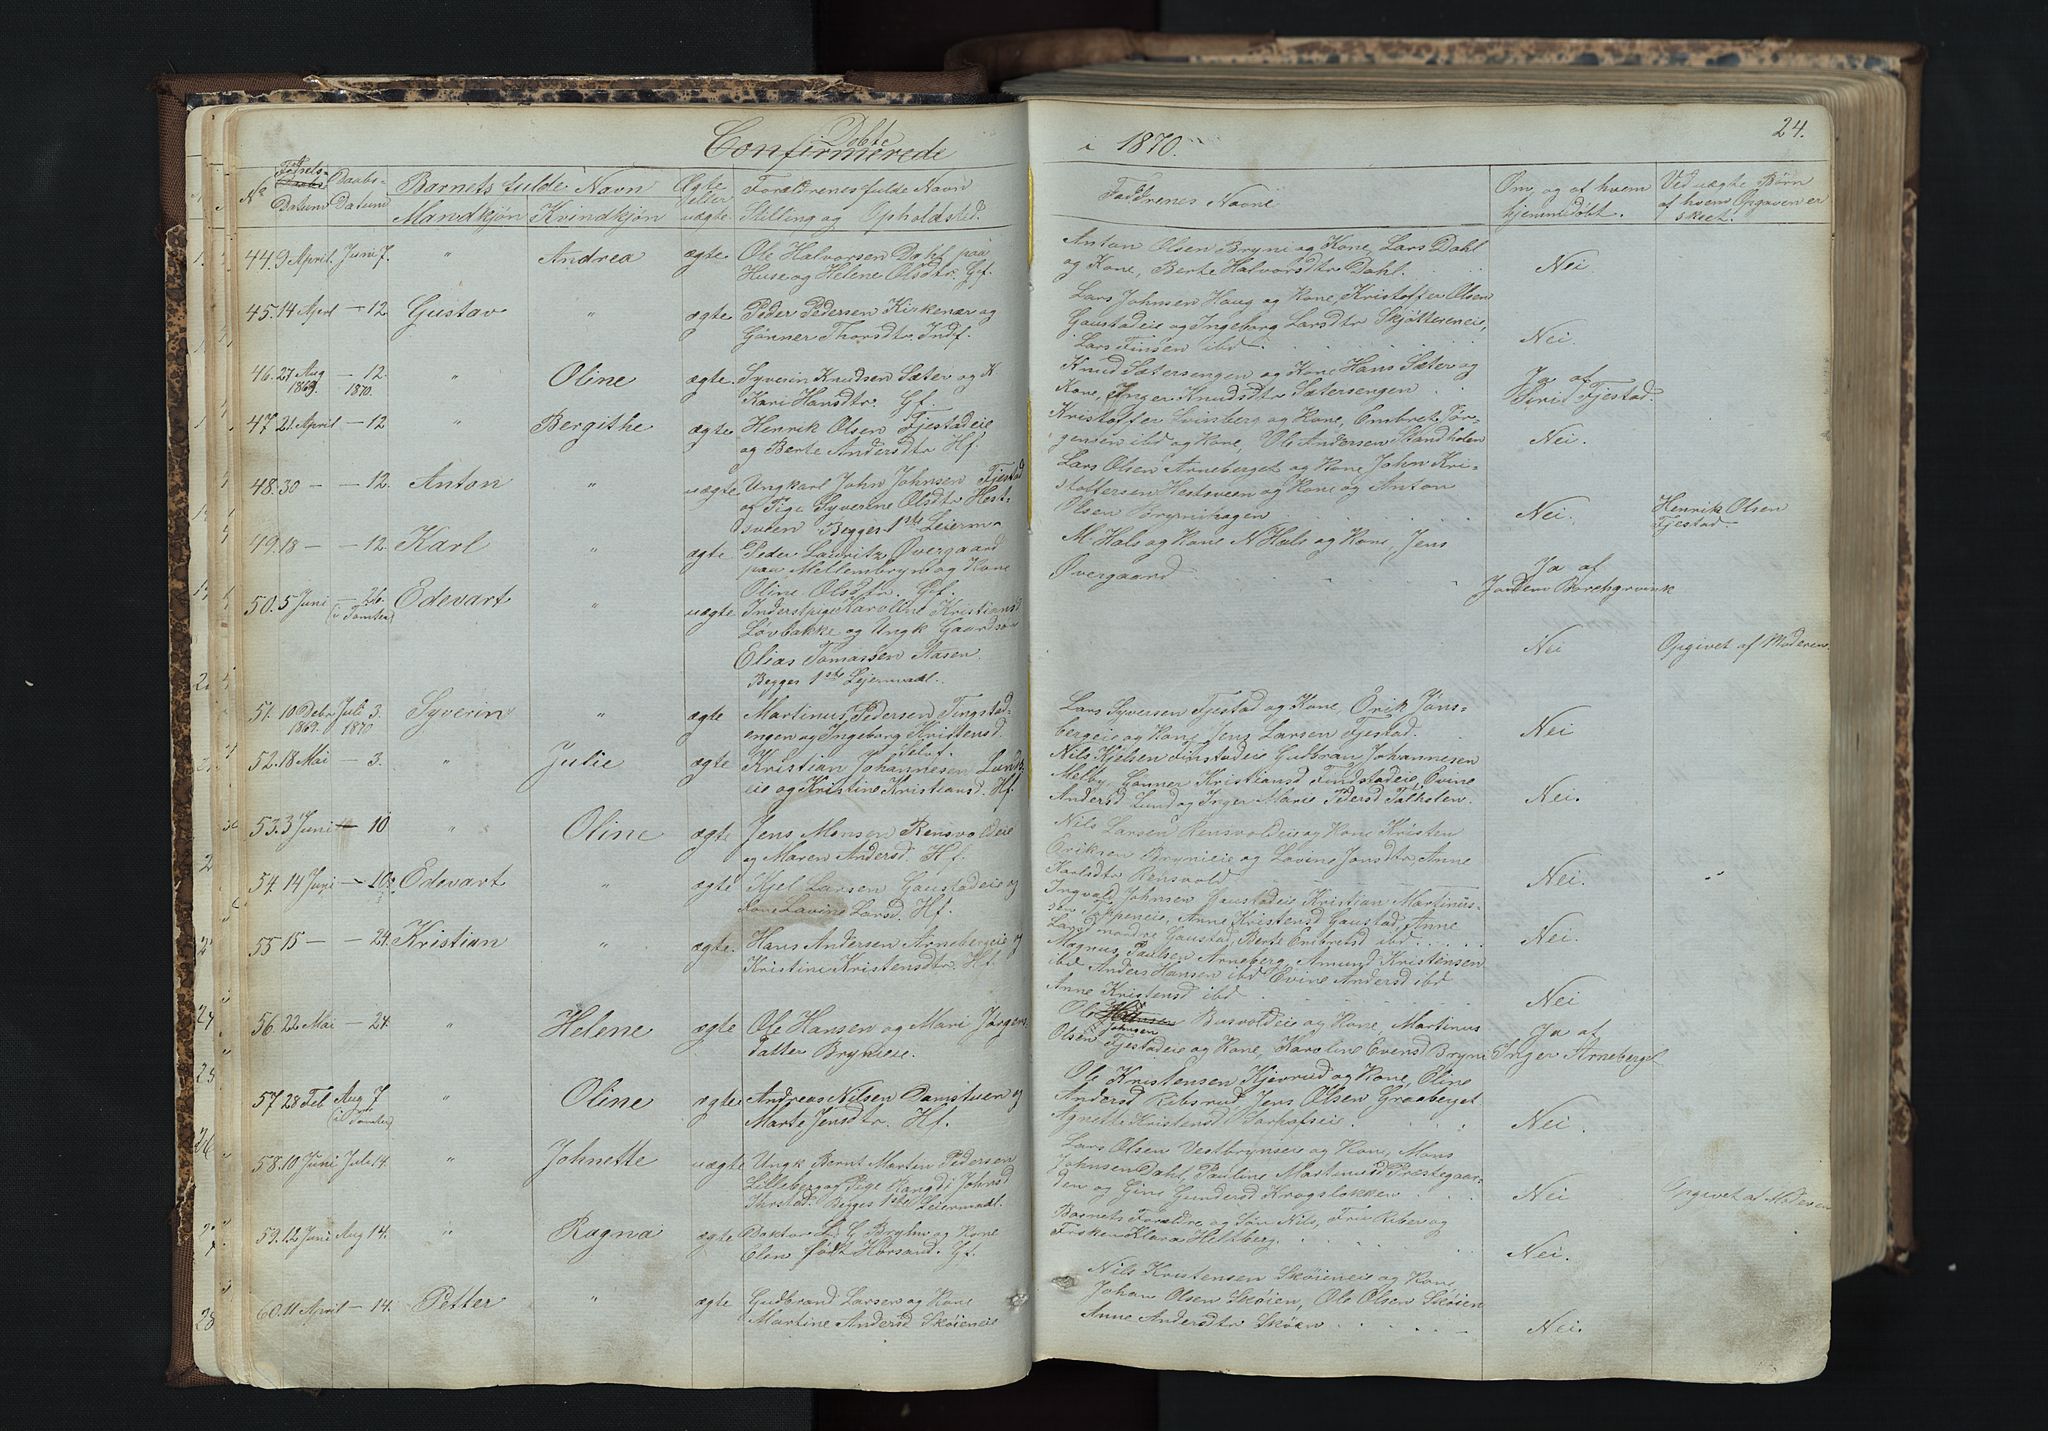 Døbte
Confirmerede
i 1870.
24.
No
Fødsels-
Datum
Daabs-
Datum
Barnets fulde Navn
Mandkjøn
Kvindkjøn
Ægte
eller
uægte
Forældrenes fulde Navn
Stilling og Opholdsted.
Faddrenes Navne
Om, og af hvem
hjemmedøbt.
Ved uægte Børn
af hvem Opgaven er
skeet.
44. 9 April. Juni 7. " Andrea ægte. Ole Halvorsen Dahl paa
Huse og Helene Olsdtr. Gf.
Anton Olsen Bryni og Kone, Lars Dahl
og Kone, Berte Halvorsdtr Dahl.
Nei
45. 14 April — 12. Gustav " ægte. Peder Pedersen Kirkenær og
Gonner Thorsdtr. Indf.
Lars Johnsen Haug og Kone, Kristoffer Olsen
Gaustadeie og Ingeborg Larsdtr Skjøttereneie,
Lars Finsen ibd.
Nei.
46. 27 Aug — 12.
1869. 1870. " Oline ægte. Syverin Knudsen Sæter og K
Kari Hansdtr. Gf.
Knud Sætersengen og Kone Hans Sæter og
Kone, Inger Knudsdtr Sætersengen
Ja af
Siri Fjestad.
47. 21 April — 12 " Bergithe ægte. Henrik Olsen Fjestadeie
og Berte Andersdtr. Hf.
Kristoffer Svinsberg og Kone, Embret Jør-
gensen ibd og Kone, Ole Andersen Strandholen
Nei.
48. 30 — — 12. Anton " uægte Ungkarl John Johnsen Fjestad
og Pige Syverine Olsdtr Hest-
sveen Begges 1ste Leierm.
Lars Olsen Arneberget og Kone John Kri-
stoffersen Hestsveen og Kone og Anton
Olsen Brynihagen
Nei.
Henrik Olsen
Fjestad.
49. 18 — — 12. Karl " ægte Peder Lauritz Overgaard
paa Mellembryni og Kone
Oline Olsdtr. Gf.
M Hals og Kone N Hals og Kone, Jens
Overgaard
Ja af
Borchgrevink
50. 5 Juni — 26. Edevart
(i Tomter) " uægte Inderstpige Karoline Kristiansd
Løvbakke og Ungk Gaardsøn
Elias Tomassen Aasen.
Begges 1ste Lejermaal.
Nei
Opgivet af Moderen
51. 10 Debr Juli 3. Syverin
1869. 1870 " ægte Martinus Pedersen Tingstad-
engen og Ingeborg Kristensd.
Selvf.
Lars Syversen Fjestad og Kone, Erik Jøns-
bergeie og Kone Jens Larsen Fjestad.
Nei
52. 18 Mai — 3. " Julie ægte Kristian Johannesen Lunds-
eie og Kristine Kristiansd. Hf.
Nils Kjelsen Finstadeie Gudbran Johannesen
Melby, Gonner Kristiansd Fundstadeie, Ovine
Andersd Lund og Inger Marie Pedersd Falholen.
Nei.
53. 3 Juni — 10 " Oline ægte Jens Monsen Rensvoldeie
og Maren Andersd. Hf.
Nils Larsen Rensvoldeie og Kone Kristen
Eriksen Brynieie og Lovine Jonsdtr, Anne
Karlsdtr Rensvold
Nei.
54. 14 Juni — 10. Edevart " ægte Kjel Larsen Gaustadeie og
Kone Lavine Larsd. Hf.
Ingvald Johnsen Gaustadeie Kristian Martinus-
sen Toppeneie, Anne Kristensd Gaustad, Anne
Larsd nordre Gaustad, Berte Embretsd ibd.
Nei.
55 15 — — 24. Kristian " ægte. Hans Andersen Arnebergeie og
Kristine Kristensdtr. Hf.
Magnus Paulsen Arneberg, Amund Kristensen
ibd Anders Hansen ibd Evine Andersd ibd
Anne Kristensd ibd
Nei
56. 22 Mai — 24. " Helene ægte Ole Hansen og Mari Jørgens
Datter Brynieie.
Ole Hansen Busvoldeie og Kone, Martinus
Olsen Johnsen Fjestadeie og Kone, Karoline Evensd Bryni
Ja af
Inger Arneberget
57. 28 Feb. Aug 7
(i Tomter) " Oline ægte Andreas Nilsen Damstuen og
Marte Jensdtr. Hf.
Ole Kristensen Kjevrud og Kone, Eline
Andersd Ribsrud Jens Olsen Graaberget
Agnette Kristensd Skarhofseie.
Nei.
58. 10 Juni Juli 14. " Johnette uægte Ungk Bernt Martin Pederson
Lilleberg og Pige Rangdi Johnsd
Thrstad. Begges 1ste Leiermaal.
Lars Olsen Vestbrynieie og Kone, Mons
Johnsen Dahl, Pauline Martinusd Præstegaar-
den og Gine Gundersd Krogslokken
Nei
Opgivet af Moderen
59. 12 Juni Aug 14. " Ragna ægte Doktor L. G Bryhn og Kone
Elen født Horsand. Gf.
Barnets Forældre og Søn Nils, Fru Riber og
Frøken Klara Heltberg.
Nei.
60. 11 April — 14. Petter " ægte Gudbrand Larsen og Kone
Martine Andersd Skøieneie
Nils Kristensen Skøieneie og Kone
Johan Olsen Skøien, Ole Olsen Skøien
Anne Andersdtr Skøien
Nei.